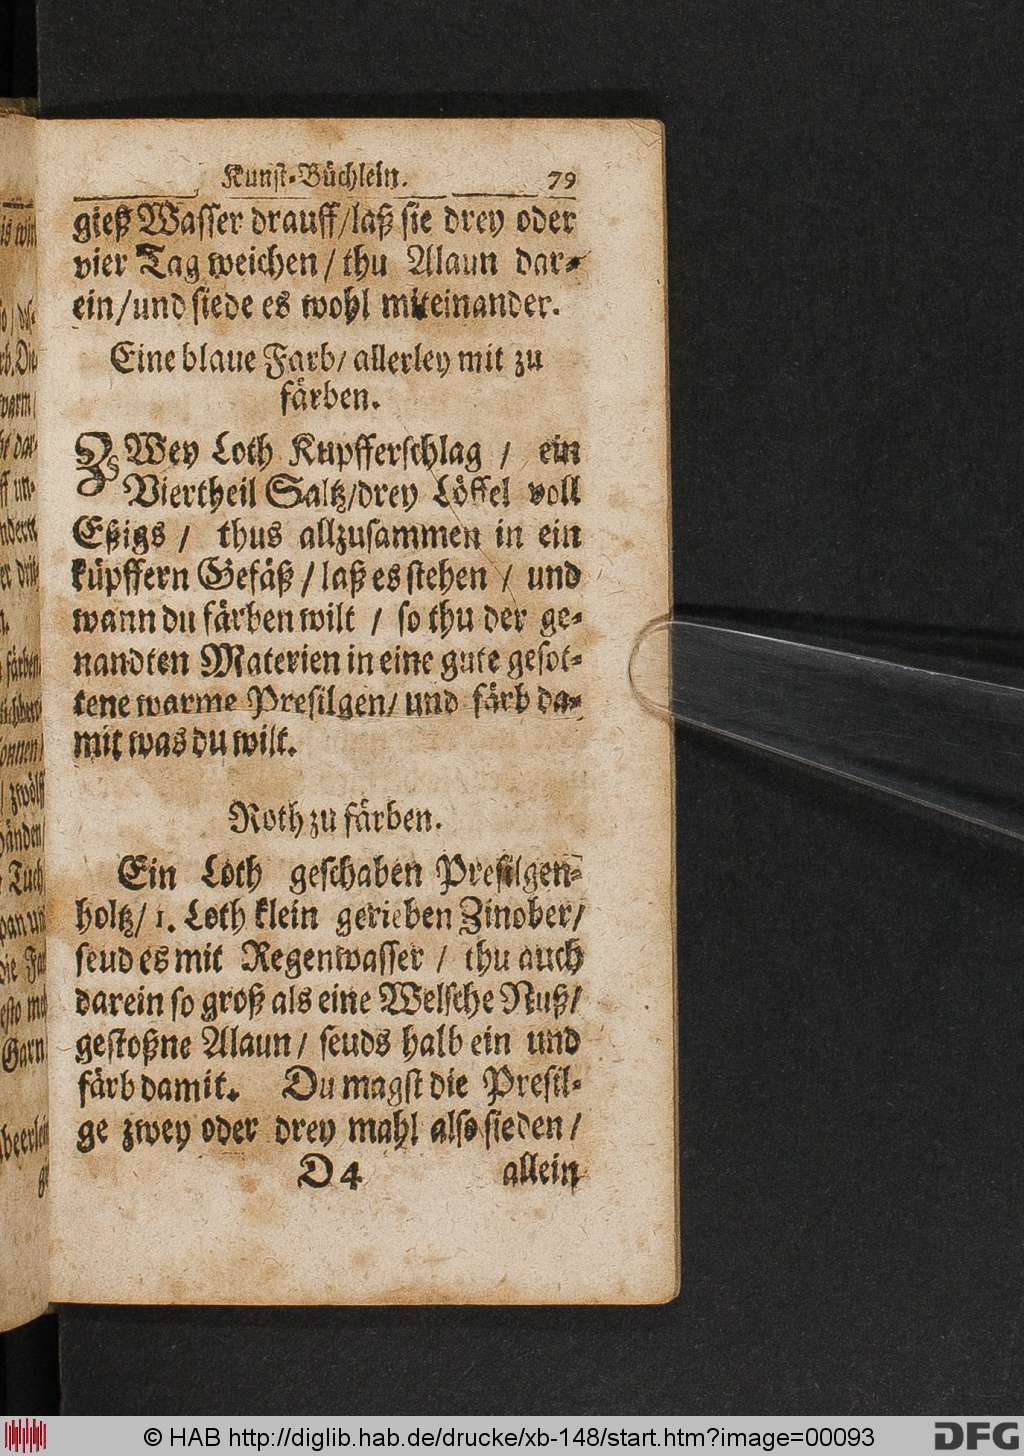 Kunst-Büchlein. 79
gieß Wasser drauff/laß sie drey oder
vier Tag weichen / thu Alaun dar-
ein/und siede es wohl miteinander.
Eine blaue Farb/ allerley mit zu
färben.
ZWey Loth Kupfferschlag / ein
Viertheil Saltz/drey Löffel voll
Eßigs / thus allzusammen in ein
küpffern Gefäß / laß es stehen / und
wann du färben wilt / so thu der ge-
nandten Materien in eine gute gesot-
tene warme Presilgen/ und färb da-
mit was du wilt.
Roth zu färben.
Ein Loth geschaben Presilgen-
holtz/ 1. Loth klein gerieben Zinober/
seud es mit Regenwasser / thu auch
darein so groß als eine Welsche Nuß/
gestoßne Alaun / seuds halb ein und
färb damit. Du magst die Presil-
ge zwey oder drey mahl also sieden /
D 4 allein
© HAB http://diglib.hab.de/drucke/xb-148/start.htm?image=00093
DFG